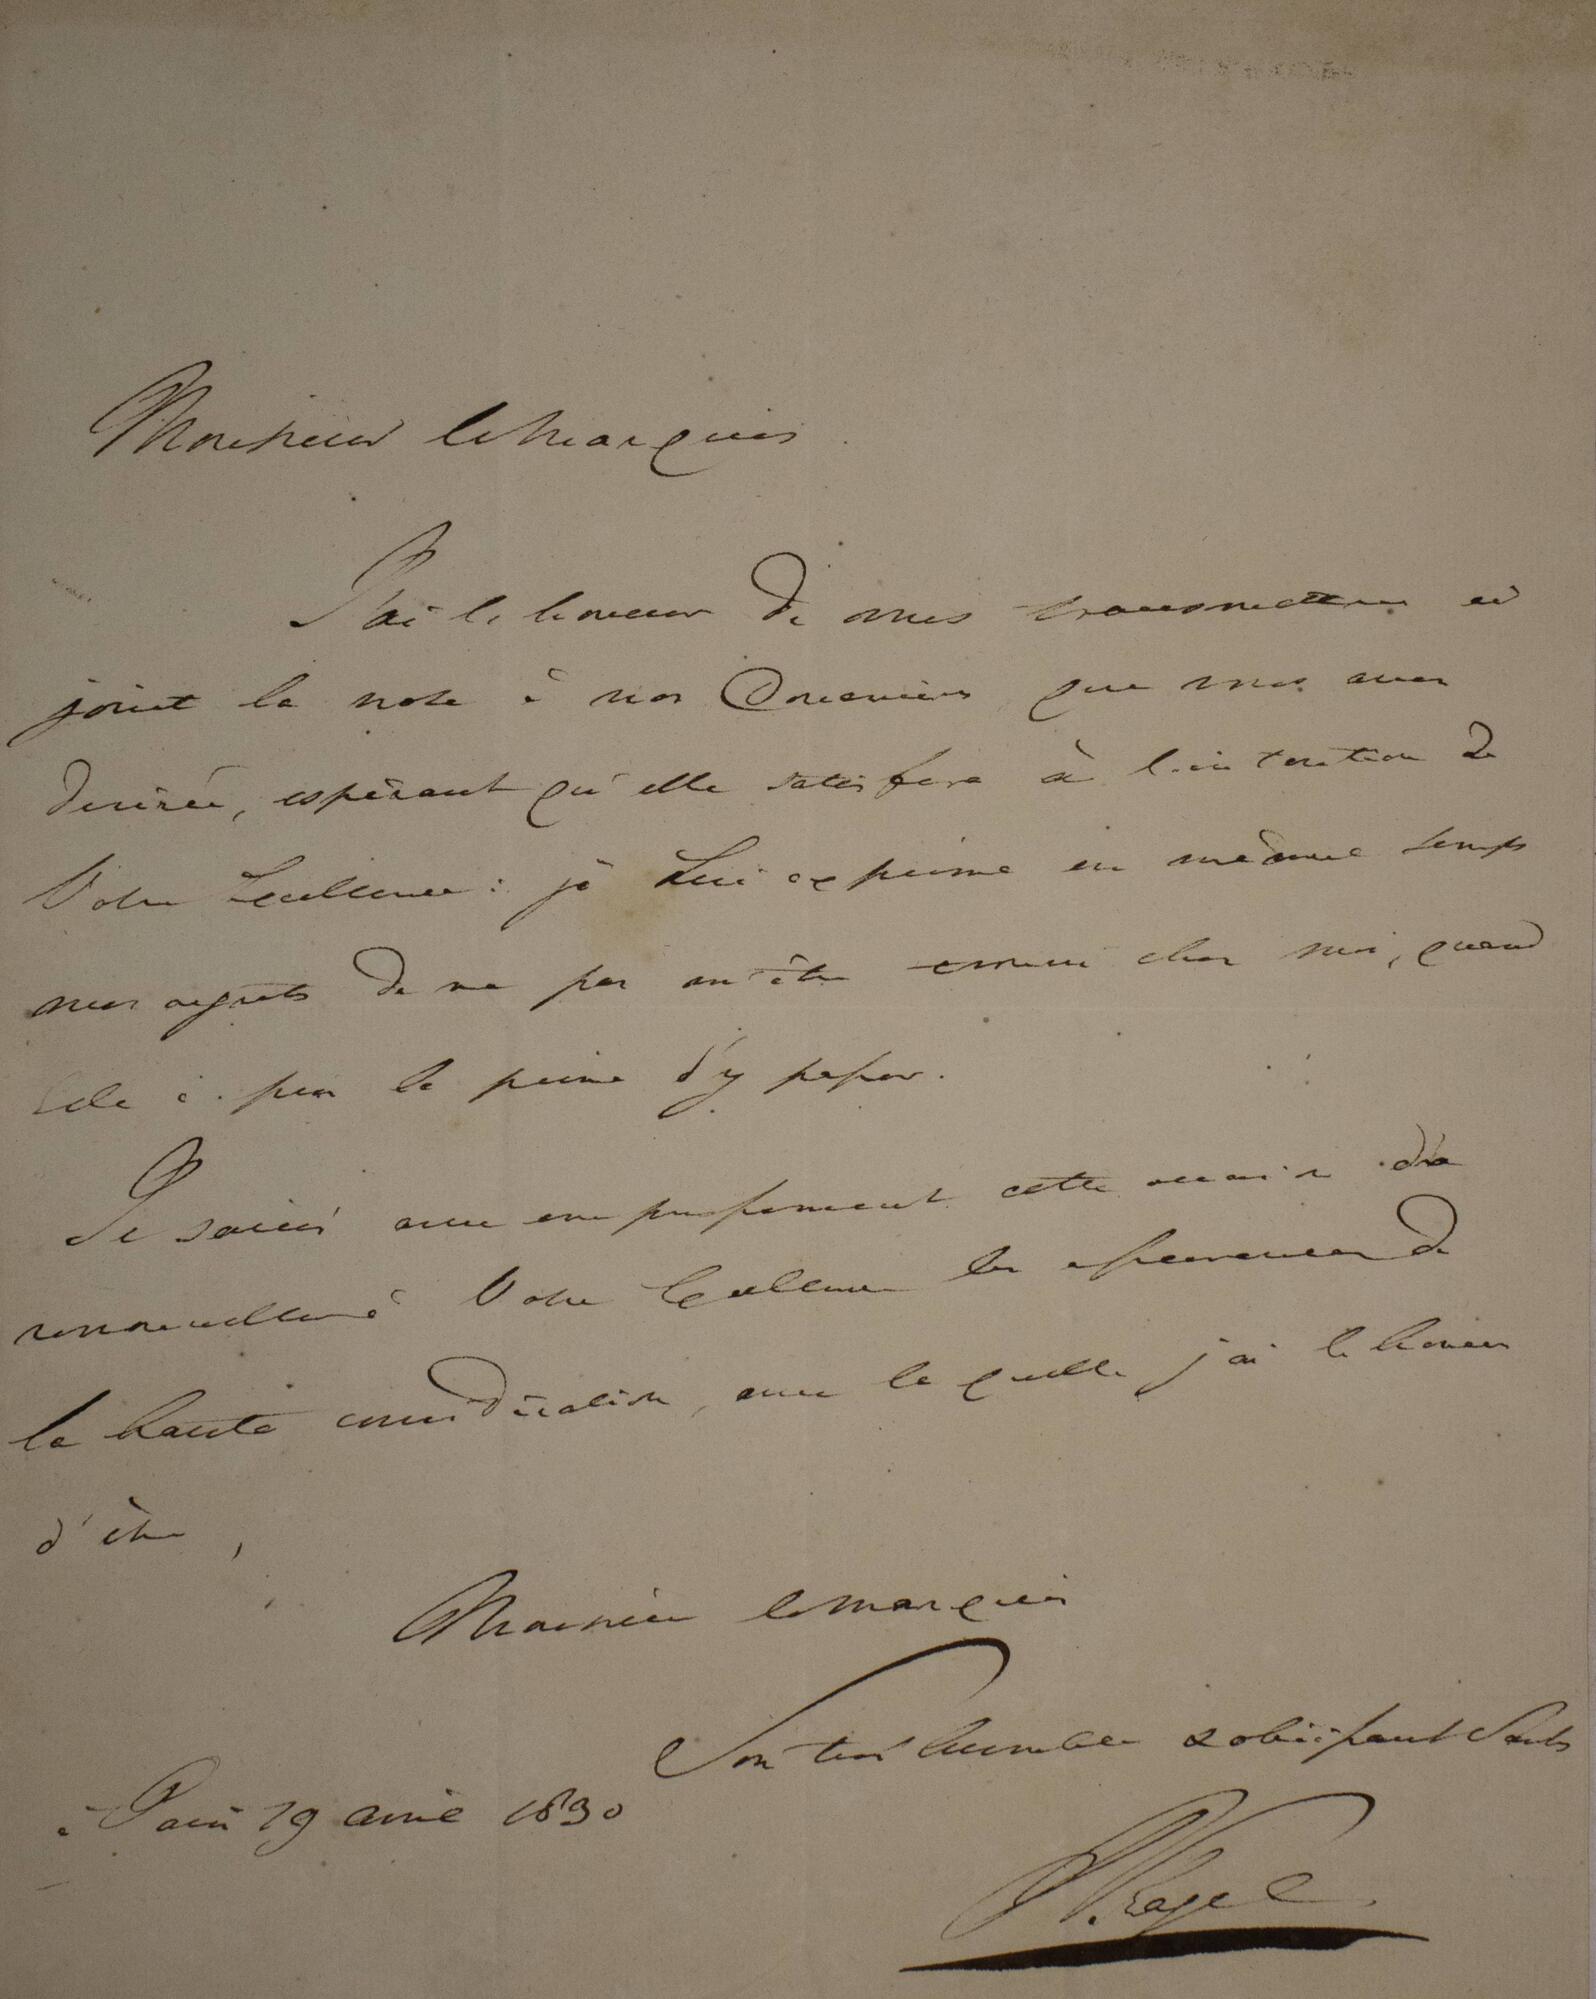 Monsieur le Marquis
J'ai le honneur de vous transmettre ci
joint la note à nos que vous avez
desirée, espèrant qu'elle satisfera à l'intention de
Votre Excellence : je Lui exprime en même temps
mes regrets de ne pas m'être trouvé chez moi, quand
Elle a pris la peine d'y passer.
Je saisis avec empressement cette occasion de
renouveller à Votre Excellence les assurances de
la haute considération, avec la quelle j'ai le honneur
d'être,
Monsieur le marquis
Son très humble & obéissant Servt
à Paris 19 avril 1830